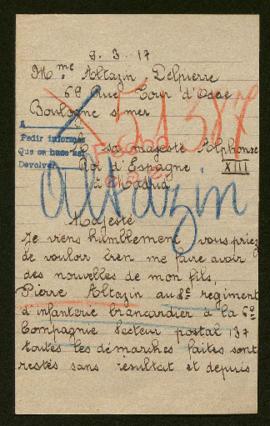 9. 3. 17
Mme Altazin Delpierre
68 Rue Tour d'Odre
Boulogne s/mer
51387
A
Pedir informes
Que ce hace así
Devolver
A sa majesté Alphonse
XIII
Roi d'Espagne
à Madrid
altazin
Majesté
Je viens humblement, vous priez
de vouloir bien me faire avoir
des nouvelles de mon fils,
Pierre Altazin au 8e régiment
d'infanterie brancardier à la 6e
Compagnie secteur postal 137
toutes les démarches faites sont
restés sans résultat et depuis